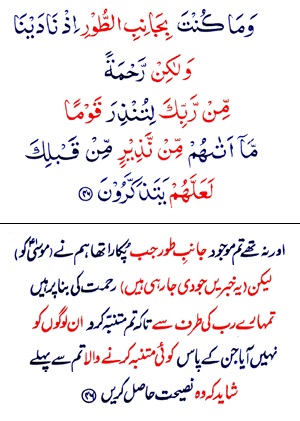 وَمَا كُنْتَ بِجَانِبِ الطُّوْرِ اِذْ نَادَيْنَا
وَلٰكِنْ رَّحْمَةً
مِّنْ رَّبِّكَ لِتُنْذِرَ قَوْمًا
مَّاۤ اَتٰىهُمْ مِّنْ نَّذِيْرٍ مِّنْ قَبْلِكَ
لَعَلَّهُمْ يَتَذَكَّرُوْنَ ﴿۴۶﴾
اور نہ تھے تم موجود جانبِ طور جب پُکارا تھا ہم نے (موسیٰؑ کو)
لیکن (یہ خبریں جو دی جا رہی ہیں) رحمت کی بنا پر ہیں
تمہارے رب کی طرف سے تاکہ تم متنبّہ کرو ان لوگوں کو
نہیں آیا جن کے پاس کوئی متنبہ کرنے والا تم سے پہلے
شاید کہ وہ نصیحت حاصل کریں ﴿۴۶﴾